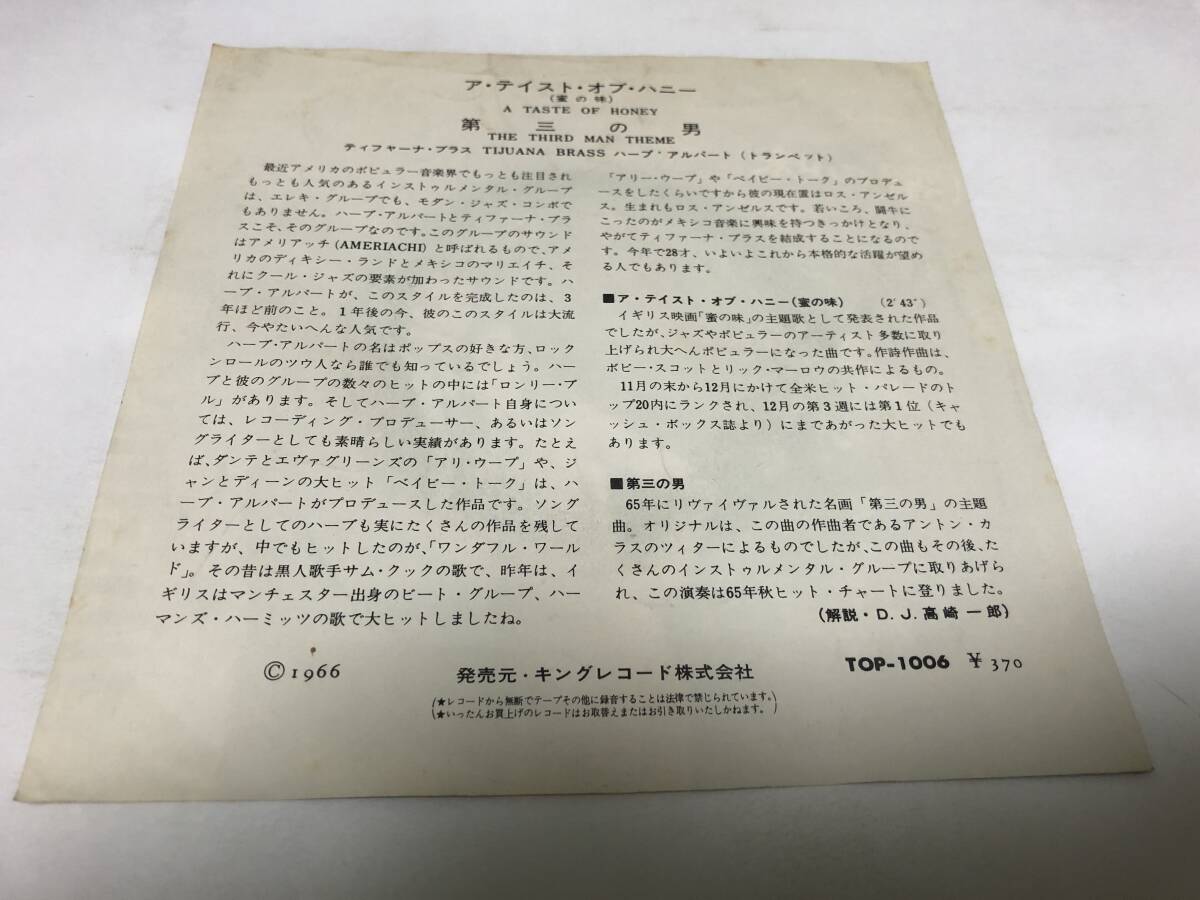 ア・テイスト・オブ・ハニー
(蜜の味)
A TASTE OF HONEY
第三の男
THE THIRD MAN THEME
ティファーナ・ブラス TIJUANA BRASS ハーブ・アルパート (トランペット)
最近アメリカのポピュラー音楽界でもっとも注目され
もっとも人気のあるインストゥルメンタル・グループ
は、エレキ・グループでも、モダン・ジャズ・コンボで
もありません。ハーブ・アルパートとティファーナ・ブラ
スこそ、そのグループなのです。このグループのサウンド
はアメリアッチ(AMERIACHI) と呼ばれるもので、アメ
リカのディキシー・ランドとメキシコのマリエイチ、そ
れにクール・ジャズの要素が加わったサウンドです。ハ
ーブ・アルパートが、このスタイルを完成したのは、3
年ほど前のこと。1年後の今、彼のこのスタイルは大流
行、今やたいへんな人気です。
ハーブ・アルパートの名はポップスの好きな方、ロック
ンロールのツウ人なら誰でも知っているでしょう。ハー
ブと彼のグループの数々のヒットの中には「ロンリー・ブ
ル」があります。そしてハーブ・アルパート自身につい
ては、レコーディング・プロデューサー、あるいはソン
グライターとしても素晴らしい実績があります。たとえ
ば、ダンテとエヴァグリーンズの「アリ・ウープ」や、ジ
ャンとディーンの大ヒット「ベイビー・トーク」は、ハ
ーブ・アルパートがプロデュースした作品です。ソング
ライターとしてのハーブも実にたくさんの作品を残して
いますが、中でもヒットしたのが、「ワンダフル・ワール
ド」。その昔は黒人歌手サム・クックの歌で、昨年は、イ
ギリスはマンチェスター出身のビート・グループ、ハー
マンズ・ハーミッツの歌で大ヒットしましたね。
「アリー・ウープ」や「ベイビー・トーク」のプロデュ
ースをしたくらいですから彼の現在置はロス・アンゼル
ス。生まれもロス・アンゼルスです。若いころ、闘牛に
こったのがメキシコ音楽に興味を持つきっかけとなり、
やがてティファーナ・ブラスを結成することになるので
す。今年で28才、いよいよこれから本格的な活躍が望め
る人でもあります。
■ア・テイスト・オブ・ハニー(蜜の味) (2′43″)
イギリス映画「蜜の味」の主題歌として発表された作品
でしたが、ジャズやポピュラーのアーティスト多数に取り
上げられ大へんポピュラーになった曲です。作詩作曲は、
ボビー・スコットとリック・マーロウの共作によるもの。
11月の末から12月にかけて全米ヒット・パレードのト
ップ20内にランクされ、12月の第3週には第1位 (キャ
ッシュ・ボックス誌より) にまであがった大ヒットでも
あります。
■第三の男
65年にリヴァイヴァルされた名画「第三の男」の主題
曲。オリジナルは、この曲の作曲者であるアントン・カ
ラスのツィターによるものでしたが、この曲もその後、た
くさんのインストゥルメンタル・グループに取りあげら
れ、この演奏は65年秋ヒット・チャートに登りました。
(解説・D.J.高崎一郎)
©1966 発売元・キングレコード株式会社 TOP-1006 ¥370
(★レコードから無断でテープその他に録音することは法律で禁じられています。)
(★いったんお買上げのレコードはお取替えまたはお引き取りいたしかねます。)